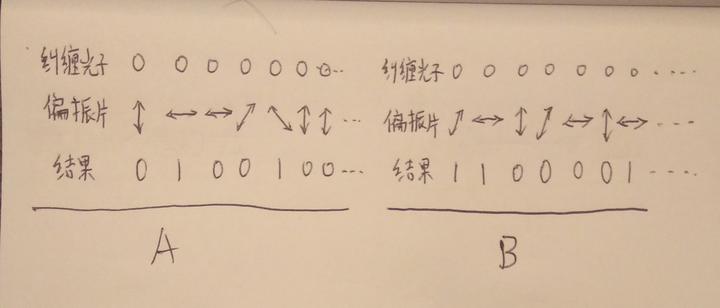 纠缠光子 0 0 0 0 0 0 0 ...
偏振片 ↕ ↔ ↔ ⤢ ⤡ ↕ ↕ ...
结果 0 1 0 0 1 0 0 ...
A
纠缠光子 0 0 0 0 0 0 0 ....
偏振片 ⤢ ↔ ↕ ⤢ ↔ ↕ ↔ ...
结果 1 1 0 0 0 0 1 ....
B